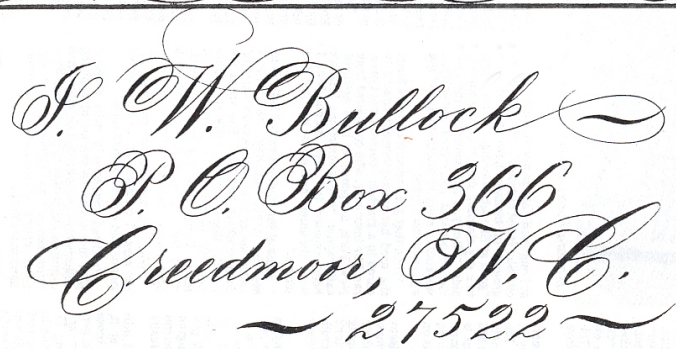 J. W. Bullock ~
P. O. Box 366
Creedmoor, N. C.
~ 27522 ~